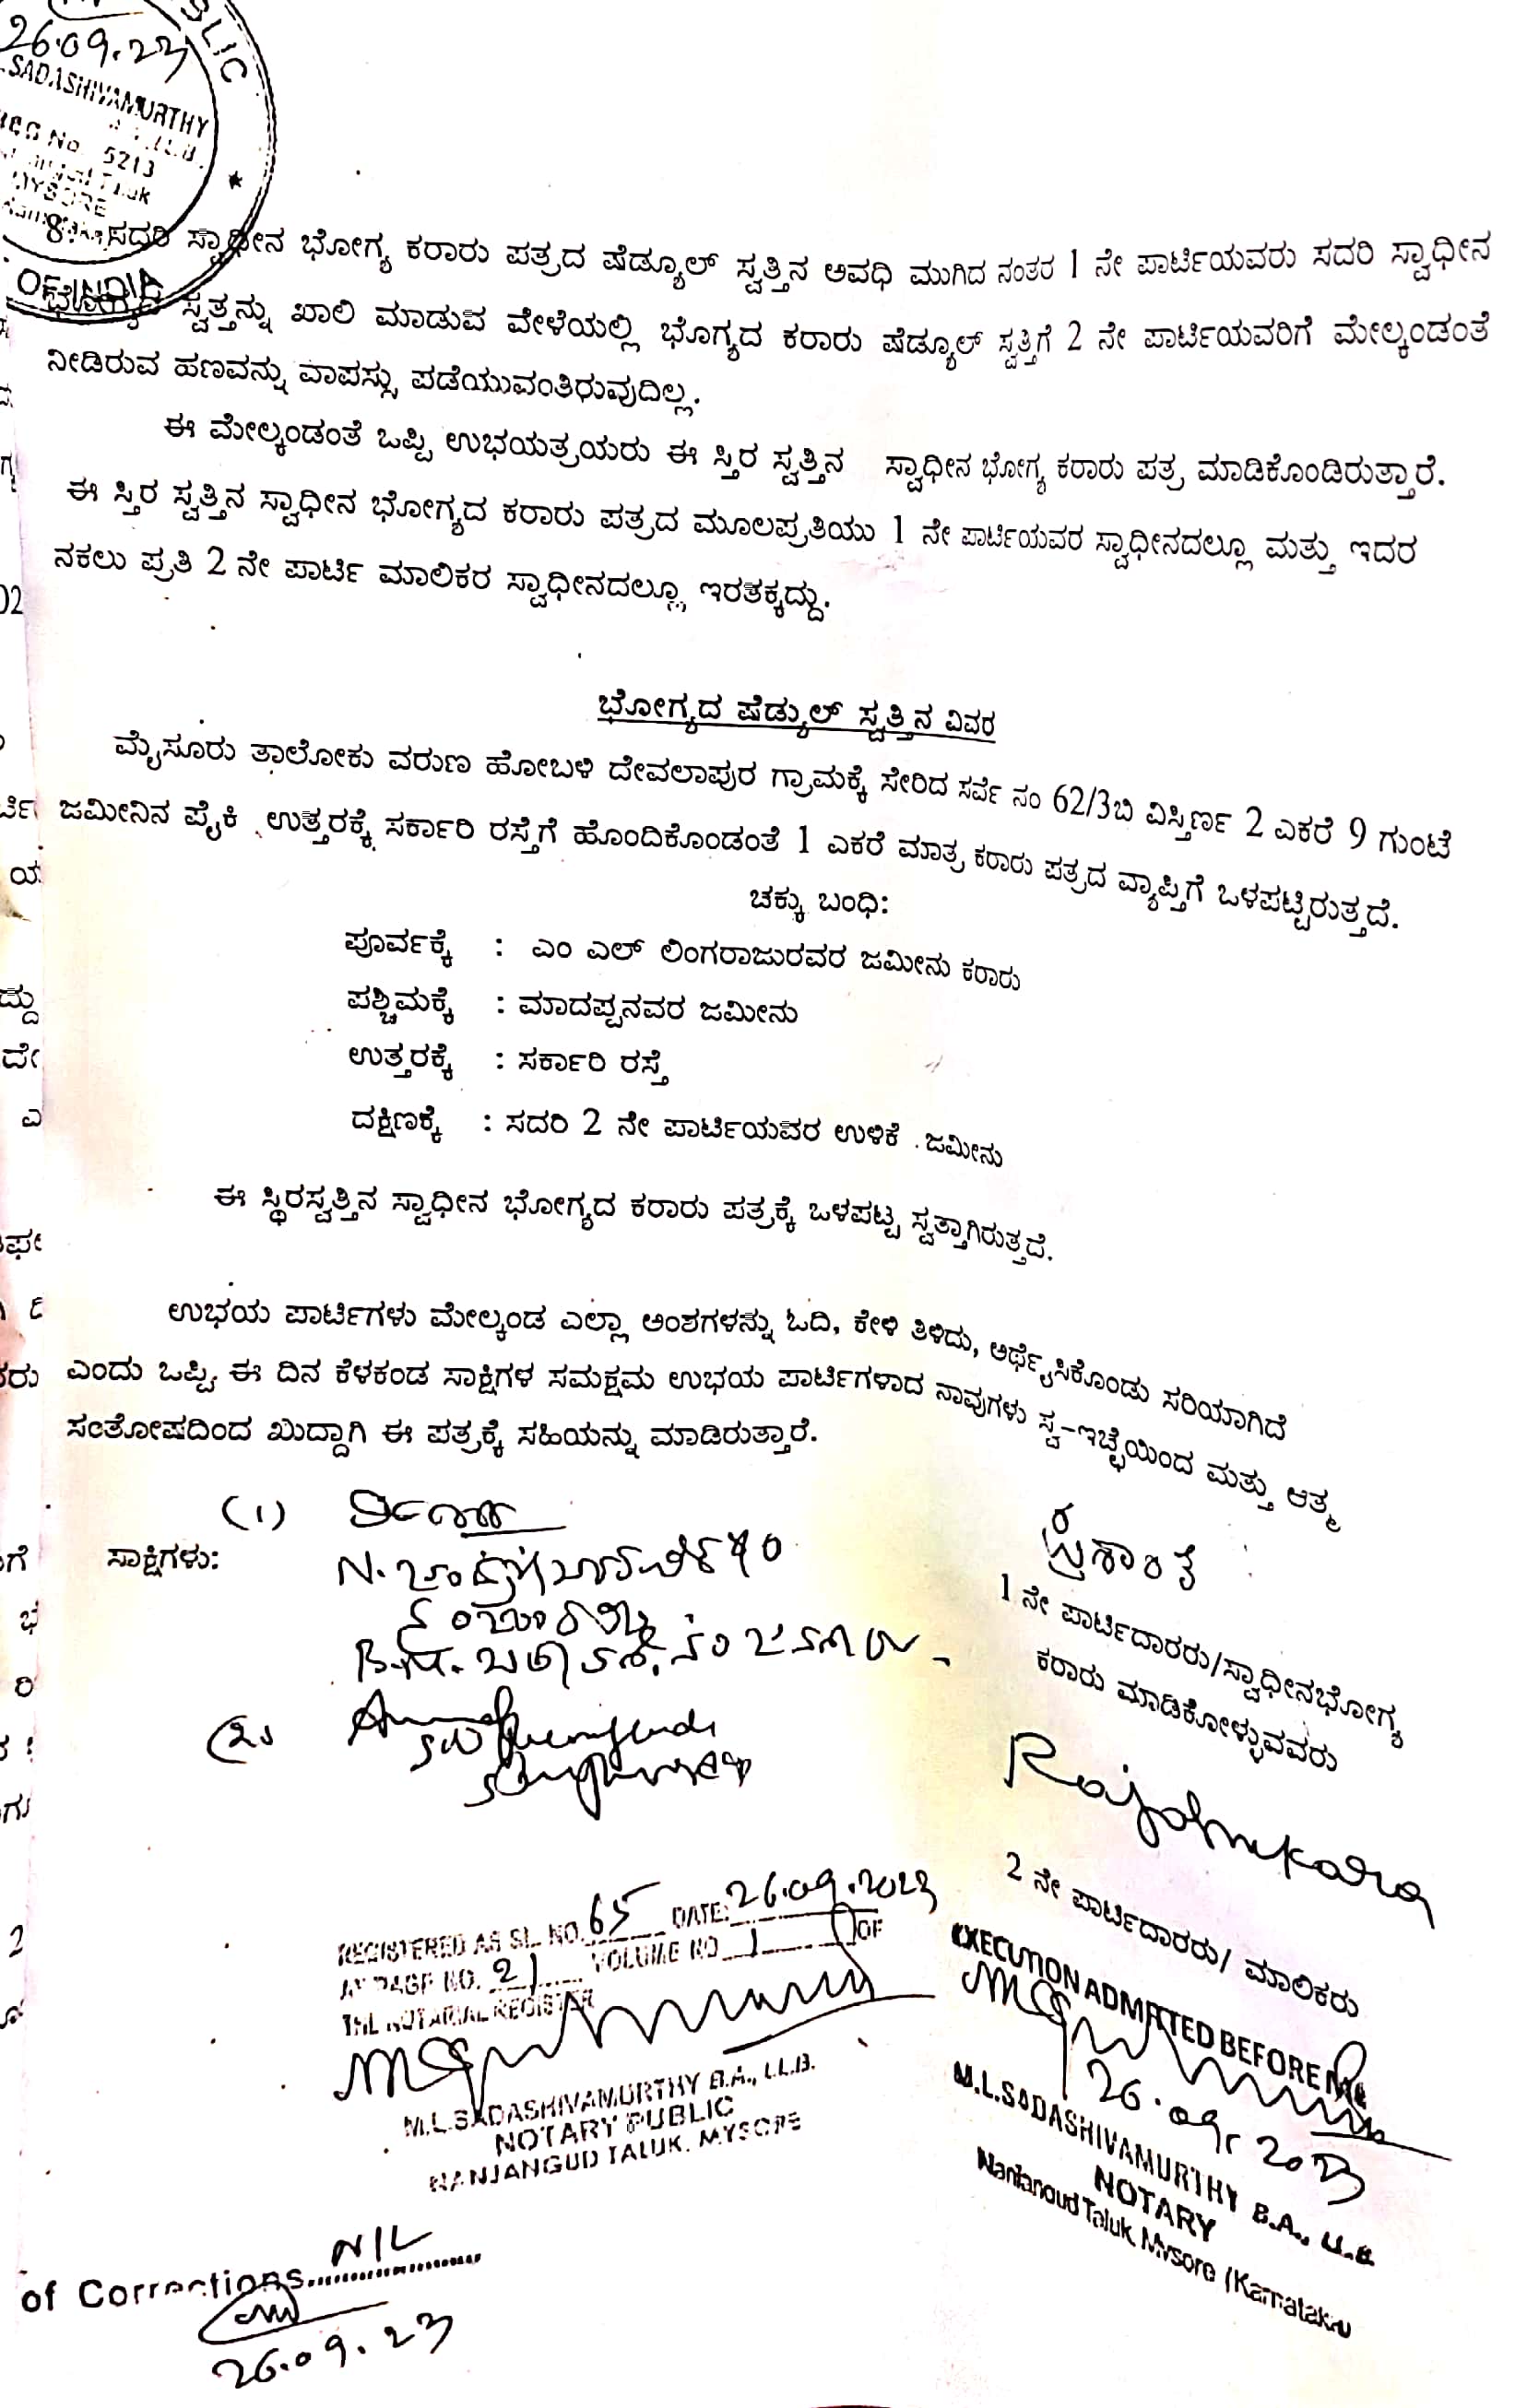 BLIC
26.09.23
.SADASHIVAMURTHY
No. 5213
MYSORE
*
OF INDIA
8. ಸದರಿ ಸ್ವಾಧೀನ ಭೋಗ್ಯ ಕರಾರು ಪತ್ರದ ಷೆಡ್ಯೂಲ್ ಸ್ವತ್ತಿನ ಅವಧಿ ಮುಗಿದ ನಂತರ 1 ನೇ ಪಾರ್ಟಿಯವರು ಸದರಿ ಸ್ವಾಧೀನ
ಭೋಗ್ಯದ ಸ್ವತ್ತನ್ನು ಖಾಲಿ ಮಾಡುವ ವೇಳೆಯಲ್ಲಿ ಭೊಗ್ಯದ ಕರಾರು ಷೆಡ್ಯೂಲ್ ಸ್ವತ್ತಿಗೆ 2 ನೇ ಪಾರ್ಟಿಯವರಿಗೆ ಮೇಲ್ಕಂಡಂತೆ
ನೀಡಿರುವ ಹಣವನ್ನು ವಾಪಸ್ಸು ಪಡೆಯುವಂತಿರುವುದಿಲ್ಲ.
ಈ ಮೇಲ್ಕಂಡಂತೆ ಒಪ್ಪಿ ಉಭಯತ್ರಯರು ಈ ಸ್ತಿರ ಸ್ವತ್ತಿನ ಸ್ವಾಧೀನ ಭೋಗ್ಯ ಕರಾರು ಪತ್ರ ಮಾಡಿಕೊಂಡಿರುತ್ತಾರೆ.
ಈ ಸ್ತಿರ ಸ್ವತ್ತಿನ ಸ್ವಾಧೀನ ಭೋಗ್ಯದ ಕರಾರು ಪತ್ರದ ಮೂಲಪ್ರತಿಯು 1 ನೇ ಪಾರ್ಟಿಯವರ ಸ್ವಾಧೀನದಲ್ಲೂ ಮತ್ತು ಇದರ
ನಕಲು ಪ್ರತಿ 2 ನೇ ಪಾರ್ಟಿ ಮಾಲಿಕರ ಸ್ವಾಧೀನದಲ್ಲೂ ಇರತಕ್ಕದ್ದು.
ಭೋಗ್ಯದ ಷೆಡ್ಯುಲ್ ಸ್ವತ್ತಿನ ವಿವರ
ಮೈಸೂರು ತಾಲೋಕು ವರುಣ ಹೋಬಳಿ ದೇವಲಾಪುರ ಗ್ರಾಮಕ್ಕೆ ಸೇರಿದ ಸರ್ವೆ ನಂ 62/3ಬಿ ವಿಸ್ತಿರ್ಣ 2 ಎಕರೆ 9 ಗುಂಟೆ
ಜಮೀನಿನ ಪೈಕಿ ಉತ್ತರಕ್ಕೆ ಸರ್ಕಾರಿ ರಸ್ತೆಗೆ ಹೊಂದಿಕೊಂಡಂತೆ 1 ಎಕರೆ ಮಾತ್ರ ಕರಾರು ಪತ್ರದ ವ್ಯಾಪ್ತಿಗೆ ಒಳಪಟ್ಟಿರುತ್ತದೆ.
ಚಕ್ಕು ಬಂಧಿ:
ಪೂರ್ವಕ್ಕೆ : ಎಂ ಎಲ್ ಲಿಂಗರಾಜುರವರ ಜಮೀನು ಕರಾರು
ಪಶ್ಚಿಮಕ್ಕೆ : ಮಾದಪ್ಪನವರ ಜಮೀನು
ಉತ್ತರಕ್ಕೆ : ಸರ್ಕಾರಿ ರಸ್ತೆ
ದಕ್ಷಿಣಕ್ಕೆ : ಸದರಿ 2 ನೇ ಪಾರ್ಟಿಯವರ ಉಳಿಕೆ ಜಮೀನು
ಈ ಸ್ಥಿರಸ್ವತ್ತಿನ ಸ್ವಾಧೀನ ಭೋಗ್ಯದ ಕರಾರು ಪತ್ರಕ್ಕೆ ಒಳಪಟ್ಟ ಸ್ವತ್ತಾಗಿರುತ್ತದೆ.
ಉಭಯ ಪಾರ್ಟಿಗಳು ಮೇಲ್ಕಂಡ ಎಲ್ಲಾ ಅಂಶಗಳನ್ನು ಓದಿ, ಕೇಳಿ ತಿಳಿದು, ಅರ್ಥೈಸಿಕೊಂಡು ಸರಿಯಾಗಿದೆ
ಎಂದು ಒಪ್ಪಿ ಈ ದಿನ ಕೆಳಕಂಡ ಸಾಕ್ಷಿಗಳ ಸಮಕ್ಷಮ ಉಭಯ ಪಾರ್ಟಿಗಳಾದ ನಾವುಗಳು ಸ್ವ-ಇಚ್ಛೆಯಿಂದ ಮತ್ತು ಆತ್ಮ
ಸಂತೋಷದಿಂದ ಖುದ್ದಾಗಿ ಈ ಪತ್ರಕ್ಕೆ ಸಹಿಯನ್ನು ಮಾಡಿರುತ್ತಾರೆ.
(1)
ಸಾಕ್ಷಿಗಳು:
(2)
1 ನೇ ಪಾರ್ಟಿದಾರರು/ಸ್ವಾಧೀನಭೋಗ್ಯ
ಕರಾರು ಮಾಡಿಕೋಳ್ಳುವವರು
2 ನೇ ಪಾರ್ಟಿದಾರರು/ ಮಾಲಿಕರು
REGISTERED AS SL. NO. 65 DATE: 26.09.2023
AT PAGE NO. 21 VOLUME NO 1 OF
THE NOTARIAL REGISTER
M.L.SADASHIVAMURTHY B.A., LL.B.
NOTARY PUBLIC
NANJANGUD TALUK. MYSORE
EXECUTION ADMITTED BEFORE ME
26.09.2023
M.L.SADASHIVAMURTHY B.A., LL.B.
NOTARY
Nanjangud Taluk, Mysore (Karnataka)
of Corrections NIL
26.09.23